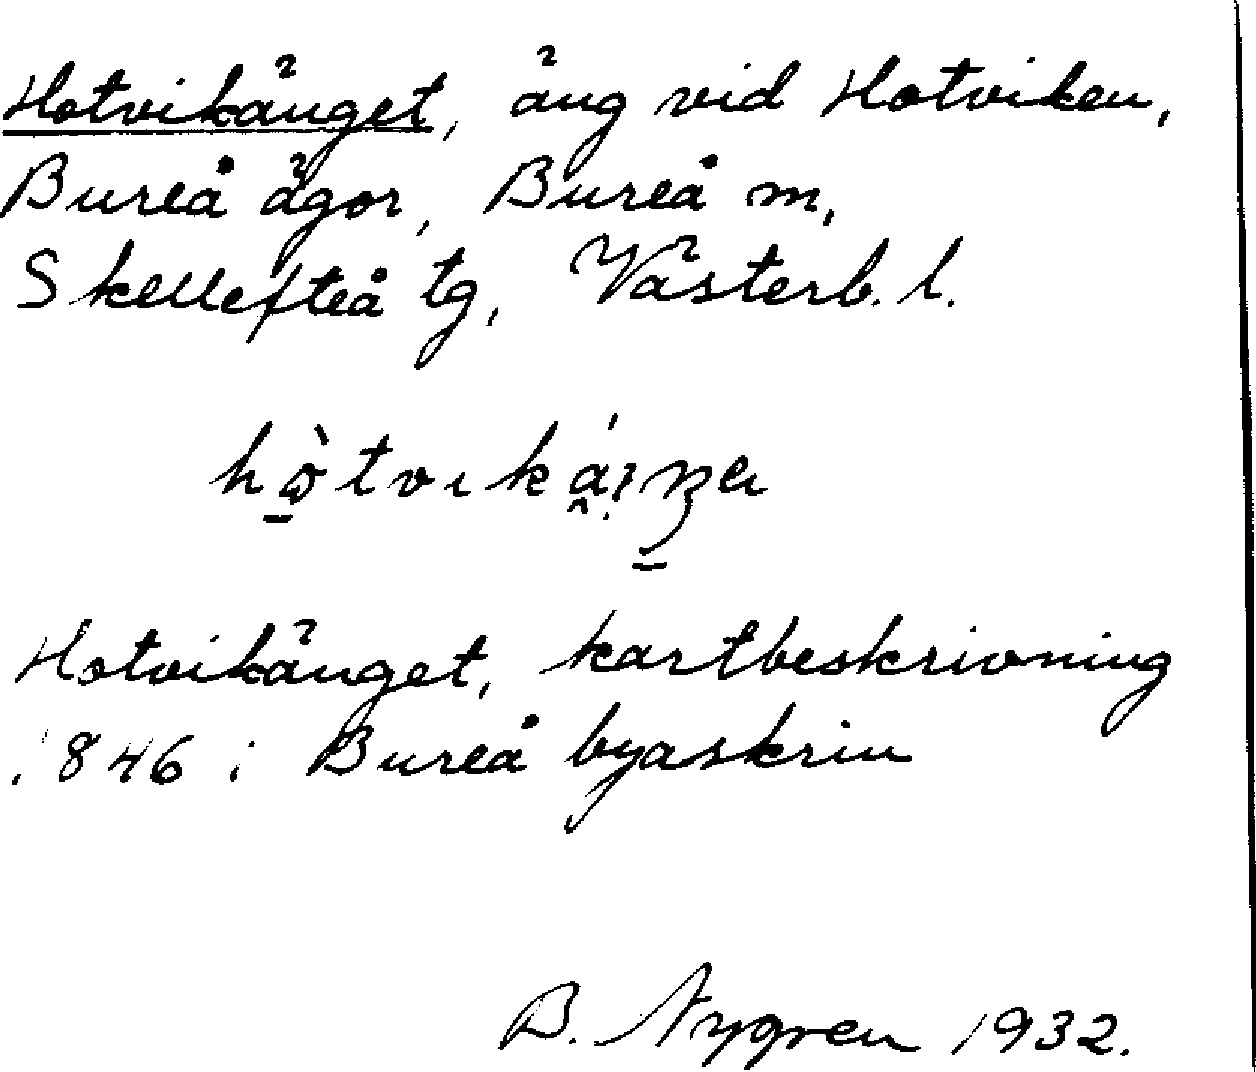 Hotvikänget, äng vid Hotviken,
Bureå ägor, Bureå m,
Skellefteå tg, Västerb. l.
Hotvikänget, kartbeskrivning
1846 i Bureå byaskrin
B. Nygren 1932.